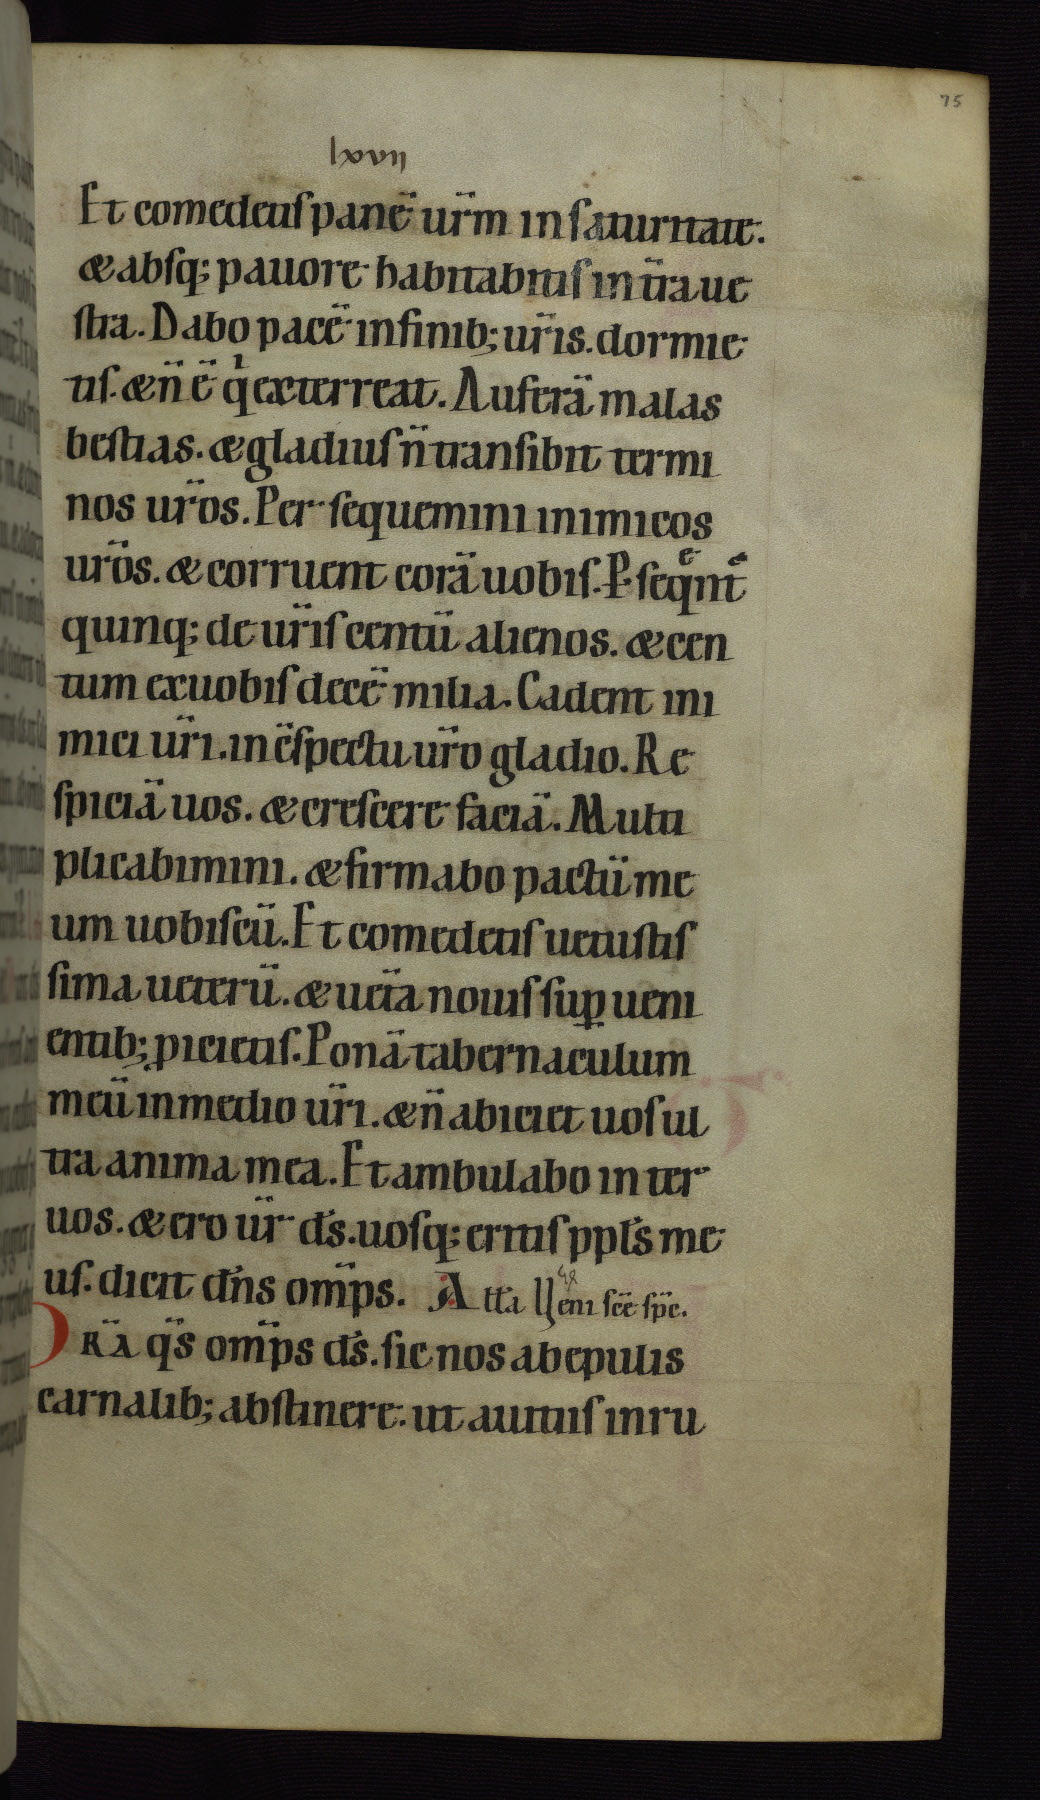 75
lxvii
Et comedetis panē ur̄m in saturitate.
& absq; pauore habitabitis in t̄ra ue
stra. Dabo pacē in finib; ur̄is. dormie
tis. & n̄ ē qͥ exterreat. Auferā malas
bestias. & gladius n̄ transibit termi
nos ur̄os. Per sequemini inimicos
ur̄os. & corruent corā uobis. P̱seq̄nt̄
quinq; de ur̄is centū alienos. & cen
tum ex uobis decē milia. Cadent ini
mici ur̄i. in c̄spectu ur̄o gladio. Re
spiciā uos. & crescere faciā. Multi
plicabimini. & firmabo pactū me
um uobiscū. Et comedetis uetustis
sima ueterū. & uet̄a nouis sup̱ ueni
entib; p̱icietis. Ponā tabernaculum
meū in medio ur̄i. & n̄ abiciet uos ul
tra anima mea. Et ambulabo in ter
uos. & ero ūr ds̄. uosq; eritis ppl̄s me
us. dicit dn̄s om̄ps.
PRĀ qs̄ om̄ps ds̄. sic nos ab epulis
carnalib; abstinere. ut a uitiis inru